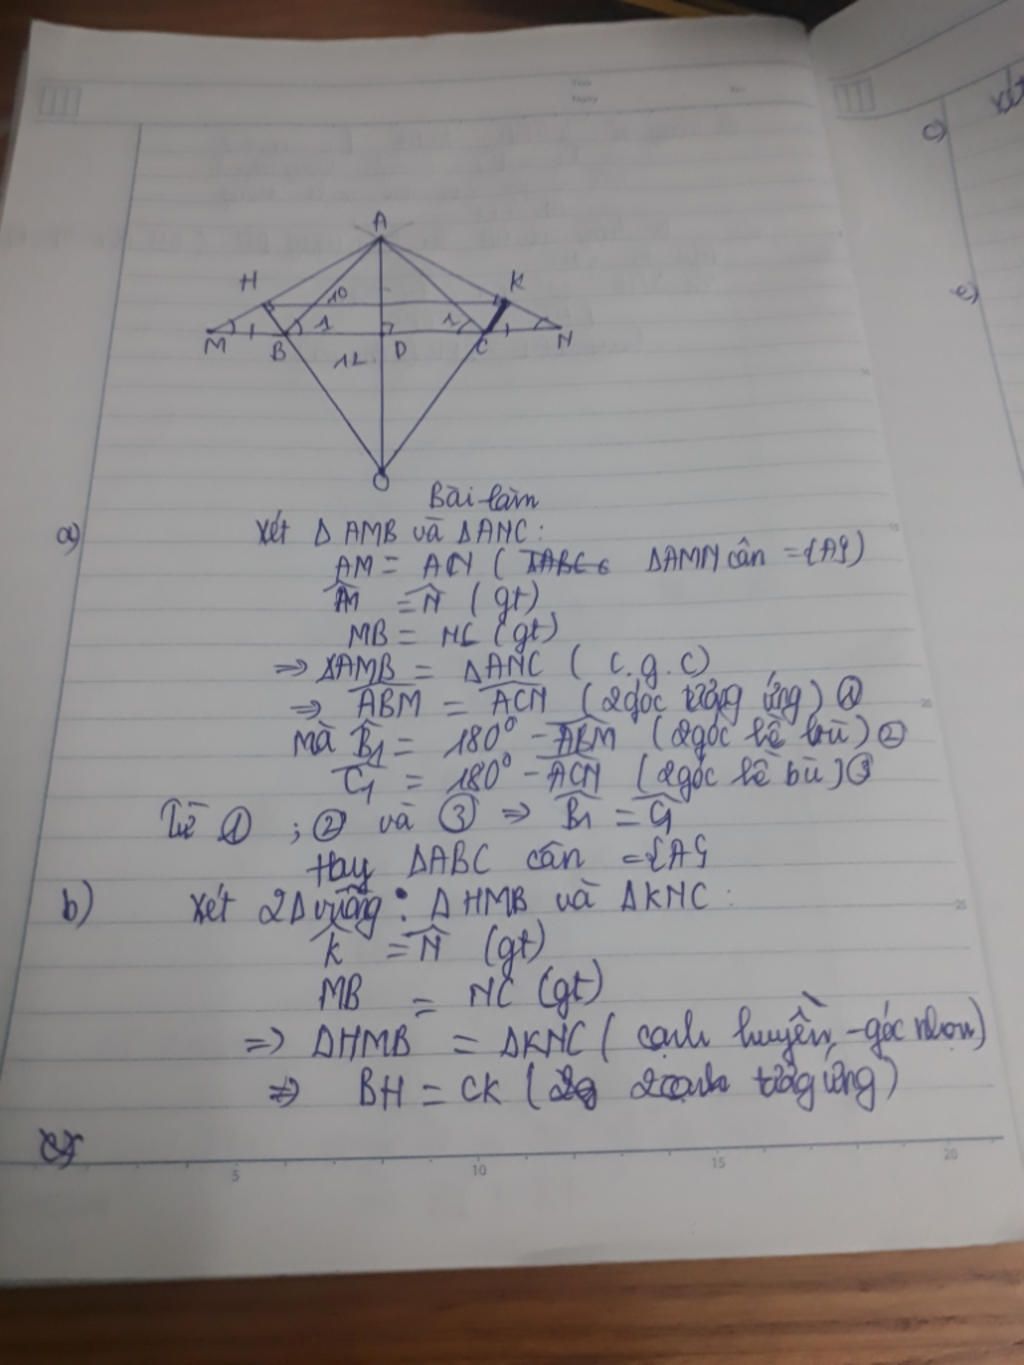 Thứ
Ngày
No.
A
H
K
10
1
1
M
B
12
D
C
N
O
Bài làm
a) Xét Δ AMB và ΔANC:
AM = ACN ( ΔAMN cân = {A})
M̂ = N̂ (gt)
MB = NC (gt)
=> ΔAMB = ΔANC ( c.g.c)
=> ABM = ACN (2góc tương ứng) ①
mà B̂1 = 180° - ABM (2góc kề bù) ②
Ĉ1 = 180° - ACN (2góc kề bù) ③
Từ ① ; ② và ③ => B̂1 = Ĉ1
Hay ΔABC cân = {A}
b) Xét 2Δ vuông : Δ HMB và ΔKNC :
K̂ = N̂ (gt)
MB = NC (gt)
=> ΔHMB = ΔKNC ( cạnh huyền -góc nhọn)
=> BH = CK ( 2cạnh tương ứng)
c)
5
10
15
20
c) xét
e)